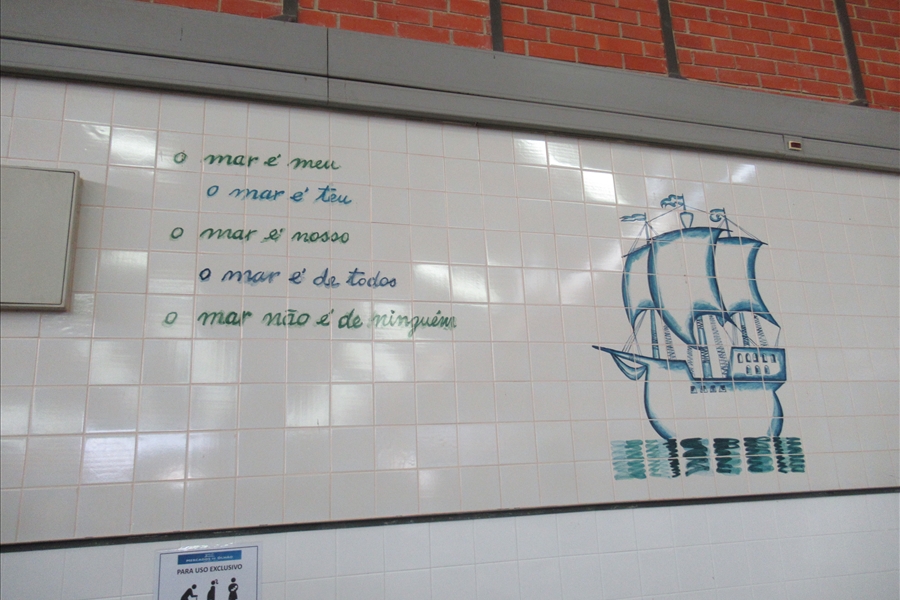 o mar é meu
o mar é teu
o mar é nosso
o mar é de todos
o mar não é de ninguém
PARA USO EXCLUSIVO